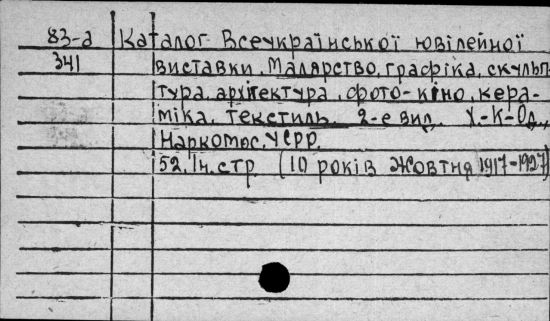 83-а Каталог Всеукраїнської ювілейної
341 виставки. Малярство, графіка, скульп-
тура, архітектура, фото-кіно, кера-
міка, текстиль. 2-е вид. Х.-К-Од.,
Наркомос. УСРР.
52, Ін. стр. (10 років Жовтня 1917-1927)